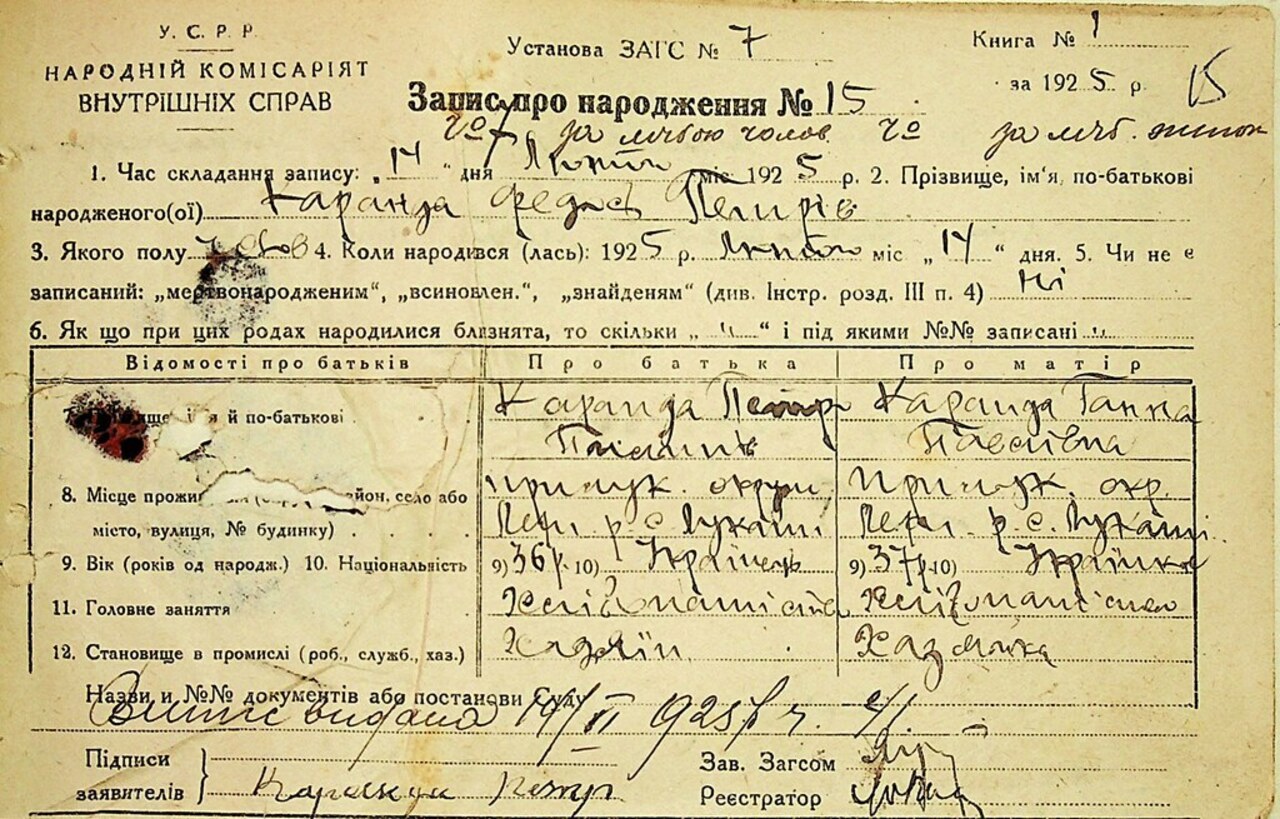 У. С. Р. Р.
НАРОДНІЙ КОМІСАРІЯТ
ВНУТРІШНІХ СПРАВ
Установа ЗАГС № 7
Книга № 1
за 1925 р. 15
Запис про народження № 15
№ 7 за лічбою чолов. № за лічб. жінок
1. Час складання запису: „14“ дня Лютого міс. 1925 р. 2. Прізвище, ім'я, по-батькові
народженого(ої) Каранда Федось Петрів
3. Якого полу 4. Коли народився (лась): 1925 р. Лютого міс „14“ дня. 5. Чи не є
записаний: „мертвонародженим“, „всиновлен.“, „знайденям“ (див. Інстр. розд. III п. 4) Ні
6. Як що при цих родах народилися близнята, то скільки „ “ і під якими №№ записані
Відомості про батьків Про батька Про матір
й по-батькові Каранда Петр Каранда Ганна
Павлівна
8. Місце район, село або Прилук. округи Прилук. окр.
місто, вулиця, № будинку) р. с. р. с.
9. Вік (років од народж.) 10. Національність 9) 36 р. 10) Українець 9) 37 р. 10) Українка
11. Головне заняття Хліборобство
12. Становище в промислі (роб., служб., хаз.) Хазяїн Хазяйка
Назви и №№ документів або постанови Суду
Витис видано 14/II 925 р.
Підписи
заявителів Каранда Петр
Зав. Загсом
Реєстратор